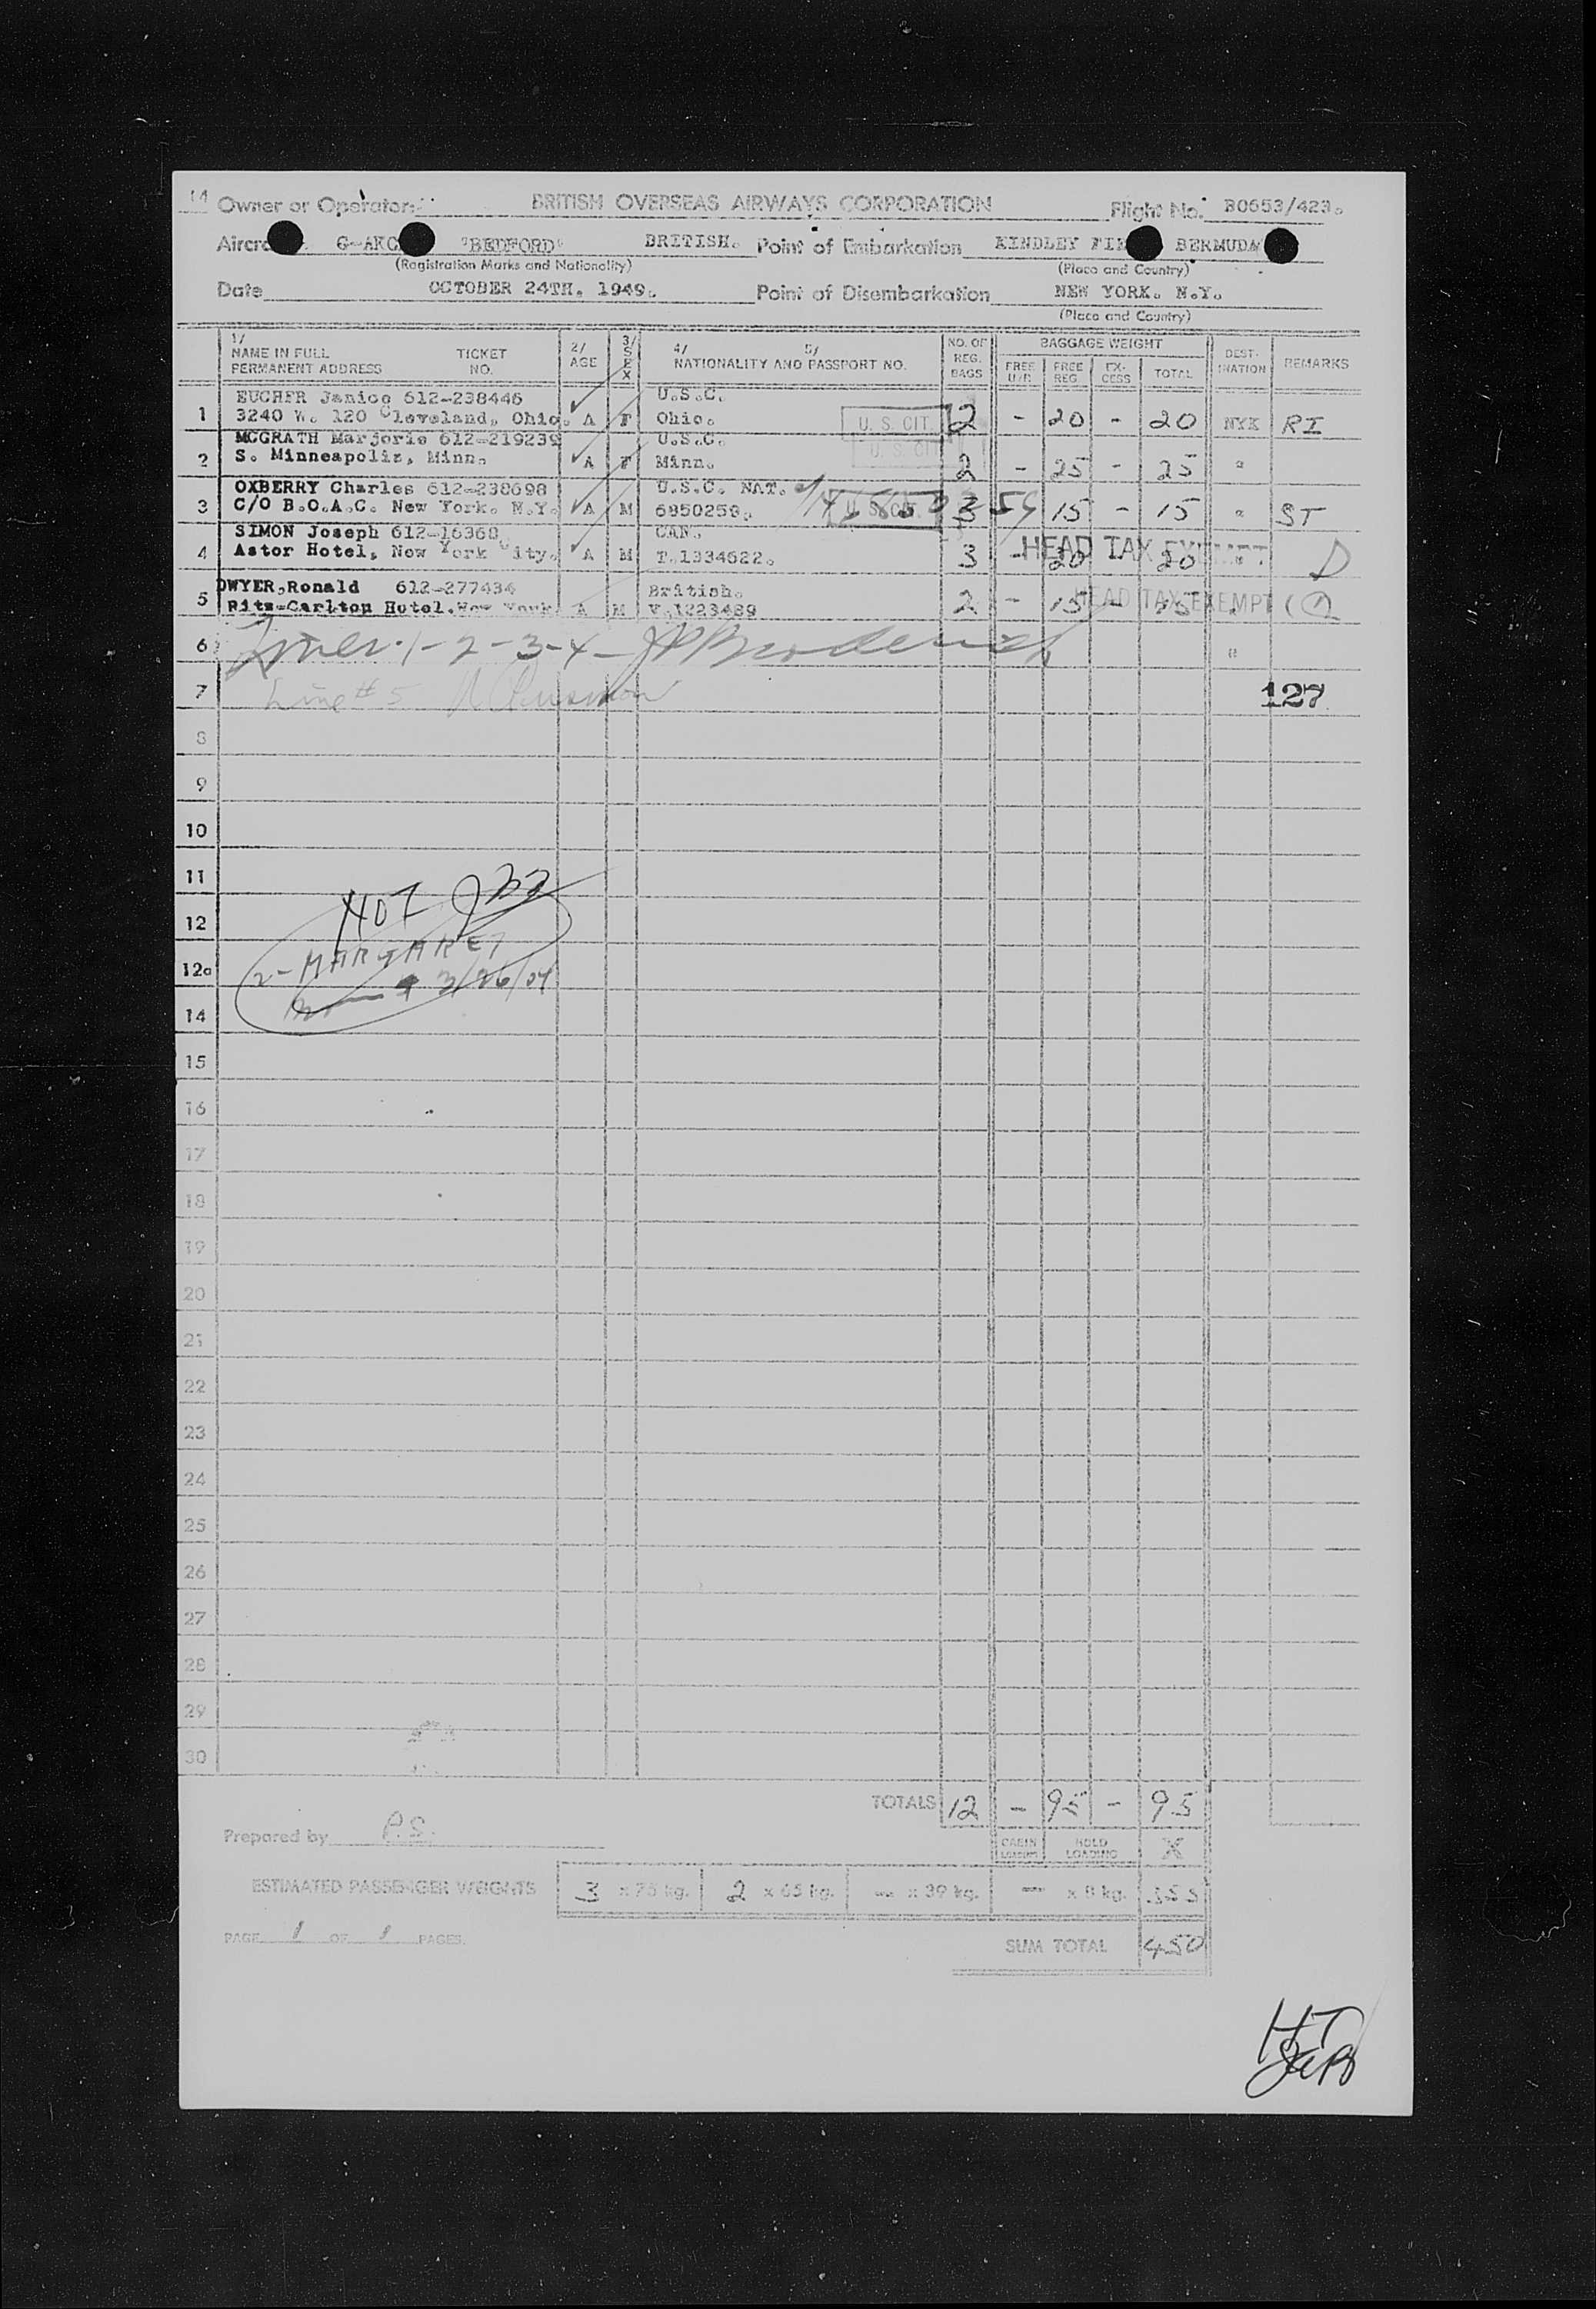 14 Owner or Operator: BRITISH OVERSEAS AIRWAYS CORPORATION Flight No. BO653/423.
G-AKC "BEDFORD" BRITISH. Point of Embarkation KINDLEY BERMUDA
(Registration Marks and Nationality) (Place and Country)
Date OCTOBER 24TH. 1949. Point of Disembarkation NEW YORK. N.Y.
(Place and Country)
1/ 2/ 3/ 4/ 5/ NO. OF BAGGAGE WEIGHT
NAME IN FULL TICKET AGE SEX NATIONALITY AND PASSPORT NO. REG. FREE FREE EX- TOTAL DEST- REMARKS
PERMANENT ADDRESS NO. BAGS U/R REG. CESS INATION
EUCHER Janice 612-238446 U.S.C.
1 3240 W. 120 Cleveland, Ohio. A F Ohio. U. S. CIT. 2 - 20 - 20 NYK RI
MCGRATH Marjorie 612-219239 U.S.C. U. S. CIT
2 S. Minneapolis, Minn. A F Minn. 2 - 25 - 25 "
OXBERRY Charles 612-238698 U.S.C. NAT.
3 C/O B.O.A.C. New York. N.Y. A M 6850258. U. S. CIT. 3 15 - 15 " ST
SIMON Joseph 612-16368 CAN.
4 Astor Hotel, New York City. A M T.1334622. 3 - 20 - 20 " HEAD TAX EXEMPT. D
DWYER,Ronald 612-277434 British.
5 Ritz-Carlton Hotel.New York A M V.1223489 2 - 15 - 15 HEAD TAX EXEMPT
6 Lines 1-2-3-4- "
7 Line # 5 127
8
9
10
11
12 
12a 2- MARGARET
3/26/04
14
15
16
17
18
19
20
21
22
23
24
25
26
27
28
29
30
TOTALS 12 - 95 - 95
Prepared by P.S. CABIN LOADING HOLD LOADING X
ESTIMATED PASSENGER WEIGHTS 3 x 75 kg. 2 x 65 kg. -- x 39 kg. -- x 8 kg. 355
PAGE 1 OF 1 PAGES. SUM TOTAL 450
HT